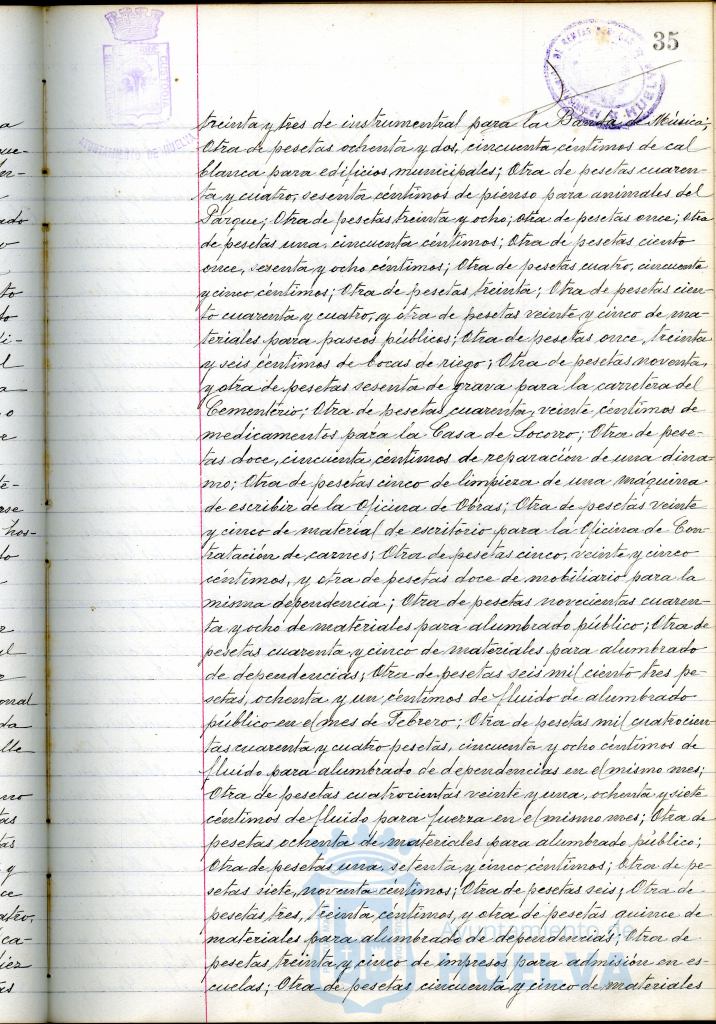 35
AYUNTAMIENTO DE HUELVA
treinta y tres de instrumental para la Banda de Música;
Otra de pesetas ochenta y dos, cincuenta céntimos de cal
blanca para edificios municipales; Otra de pesetas cuaren-
ta y cuatro, sesenta céntimos de pienso para animales del
Parque; Otra de pesetas treinta y ocho; otra de pesetas once; otra
de pesetas una, cincuenta céntimos; Otra de pesetas ciento
once, sesenta y ocho céntimos; Otra de pesetas cuatro, cincuenta
y cinco céntimos; Otra de pesetas treinta; Otra de pesetas cien-
to cuarenta y cuatro, y otra de pesetas veinte y cinco de ma-
teriales para paseos públicos; Otra de pesetas once, treinta
y seis céntimos de bocas de riego; Otra de pesetas noventa,
y otra de pesetas sesenta de grava para la carretera del
Cementerio; Otra de pesetas cuarenta, veinte céntimos de
medicamentos para la Casa de Socorro; Otra de pese-
tas doce, cincuenta céntimos de reparación de una dina-
mo; Otra de pesetas cinco de limpieza de una máquina
de escribir de la Oficina de Obras; Otra de pesetas veinte
y cinco de material de escritorio para la Oficina de Con-
tratación de carnes; Otra de pesetas cinco, veinte y cinco
céntimos, y otra de pesetas doce de mobiliario para la
misma dependencia; Otra de pesetas novecientas cuaren-
ta y ocho de materiales para alumbrado público; Otra de
pesetas cuarenta y cinco de materiales para alumbrado
de dependencias; Otra de pesetas seis mil ciento tres pe-
setas, ochenta y un céntimos de fluido de alumbrado
público en el mes de Febrero; Otra de pesetas mil cuatrocien-
tas cuarenta y cuatro pesetas, cincuenta y ocho céntimos de
fluido para alumbrado de dependencias en el mismo mes;
Otra de pesetas cuatrocientas veinte y una, ochenta y siete
céntimos de fluido para fuerza en el mismo mes; Otra de
pesetas ochenta de materiales para alumbrado público;
Otra de pesetas una, setenta y cinco céntimos; Otra de pe-
setas siete, noventa céntimos; Otra de pesetas seis; Otra de
pesetas, tres, treinta céntimos, y otra de pesetas quince de
materiales para alumbrado de dependencias; Otra de
pesetas treinta y cinco de impresos para admisión en es-
cuelas; Otra de pesetas cincuenta y cinco de materiales
Ayuntamiento de
HUELVA